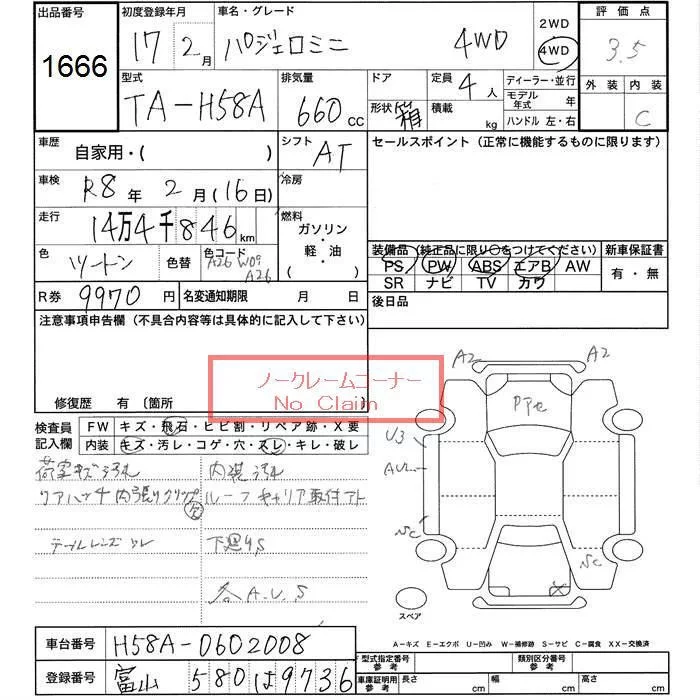 出品番号 1666
初度登録年月 17 2月
車名・グレード パジェロミニ 4WD
2WD 4WD
評価点 3.5
外装 内装 C
型式 TA-H58A
排気量 660 cc
ドア形状 箱
定員 4人
積載 kg
ディーラー・並行
モデル年式 年
ハンドル 左・右
車歴 自家用・( )
シフト AT
セールスポイント (正常に機能するものに限ります)
車検 R8年 2月 (16日)
冷房
走行 14万4千846km
燃料 ガソリン・軽・油 ( )
色 ツートン
色替
色コード A26 W09 A26
装備品 (純正品に限り○をつけてください)
PS PW ABS エアB AW
SR ナビ TV カワ
新車保証書 有・無
R券 9970円
名変通知期限 月 日
後日品
注意事項申告欄 (不具合内容等は具体的に記入して下さい)
ノークレームコーナー
No Claim
修復歴 有 〔箇所 〕
検査員記入欄
FW キズ・飛石・ヒビ割・リペア跡・X要
内装 キズ・汚レ・コゲ・穴・スレ・キレ・破レ
荷室キズ汚れ 内装汚れ
リアハッチ内張りクリップ欠 ルーフキャリア取付アト
テールレンズスレ 下廻りS
各A.U.S
A2 A2
U3
SC SC
X
スペア
A-キズ E-エクボ U-凹み W-補修跡 S-サビ C-腐食 XX-交換済
車台番号 H58A-0602008
登録番号 富山 580 は 9736
型式指定番号 参考
類別区分番号 参考
車庫証明用参考 長さ cm 幅 cm 高さ cm